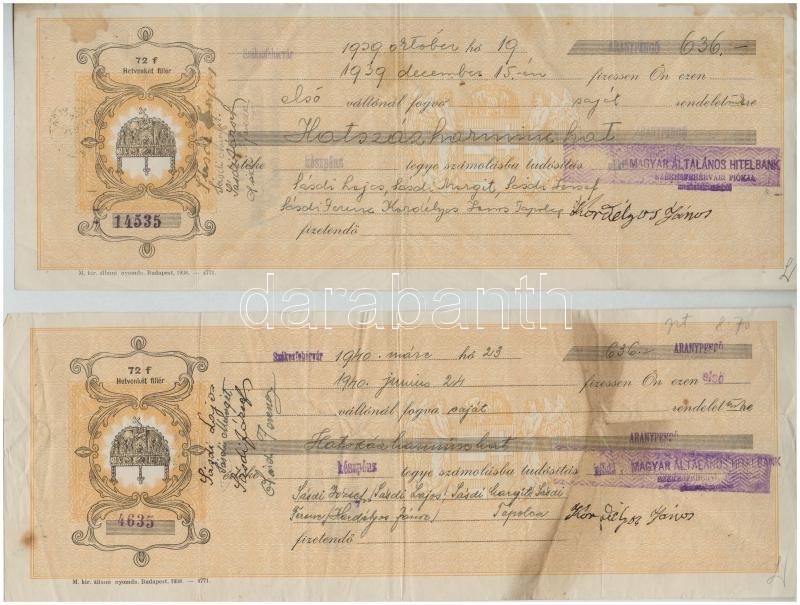 72 f
Hetvenkét fillér
Székesfehérvár 1939 október hó 19 ARANYPENGŐ 636.-
1939 december 15.-én fizessen Ön ezen
első váltónál fogva saját rendeletre
Hatszázharminchat
értéke készpénz tegye számolásba tudósítás
MAGYAR ÁLTALÁNOS HITELBANK
SZÉKESFEHÉRVÁRI FIÓKJA
Sásdi Lajos, Sásdi Margit, Sásdi József
Sásdi Ferenc Kordélyos János Tapolca Kordélyos János
fizetendő
14535
M. kir. állami nyomda. Budapest, 1938. — 4771.
darabanth
8.70
72 f
Hetvenkét fillér
Székesfehérvár 1940 márc hó 23 636.- ARANYPENGŐ
1940 junius 24 fizessen Ön ezen első
váltónál fogva saját rendeletre
Hatszázharminchat ARANYPENGŐ
készpénz tegye számolásba tudósítás
MAGYAR ÁLTALÁNOS HITELBANK
Sásdi Lajos
Sásdi Margit
Sásdi József
Sásdi Ferenc
Sásdi József, Sásdi Lajos, Sásdi Margit, Sásdi
Ferenc, Kordélyos János, Tapolca Kordélyos János
fizetendő
4635
M. kir. állami nyomda. Budapest, 1938. — 4771.